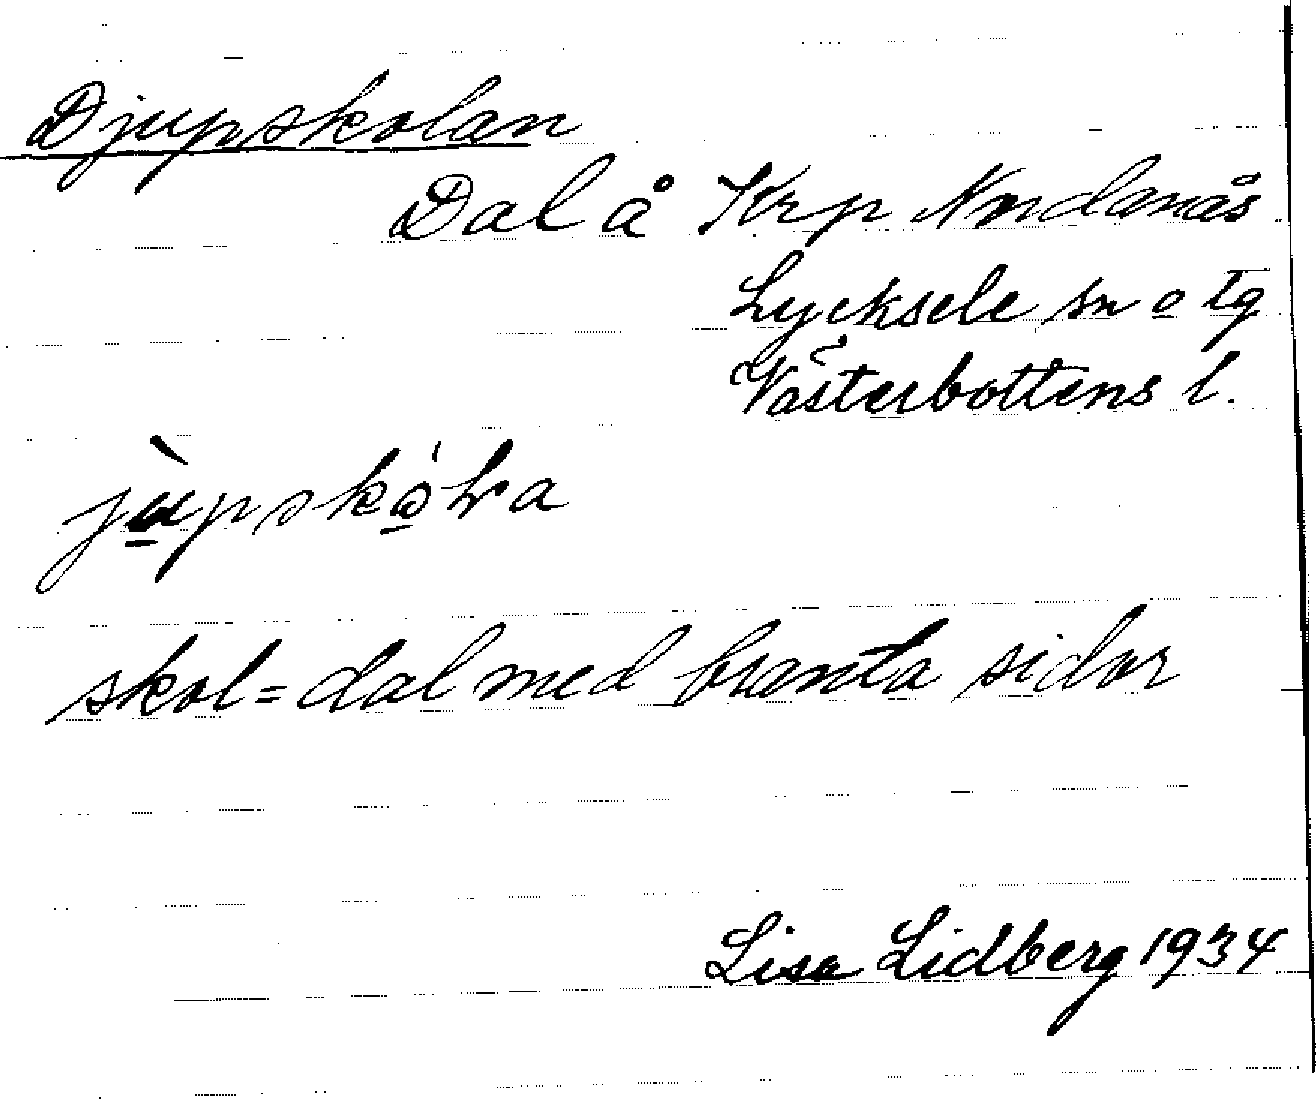 Djupskolan
Dal å Krp Nordanås
Lycksele sn o tg
Västerbottens l.
jùpskólra
skol = dal med branta sidor
Lisa Lidberg 1934